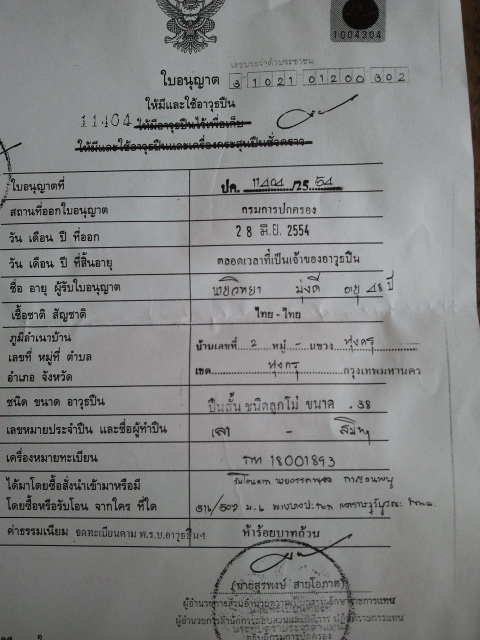 1004304
เลขประจำตัวประชาชน
ใบอนุญาต 3 1021 01200 302
ให้มีและใช้อาวุธปืน
11404 ให้มีอาวุธปืนไว้เพื่อเก็บ
ให้มีและใช้อาวุธปืนและเครื่องกระสุนปืนชั่วคราว
ใบอนุญาตที่ ปค. 11404 /25 54
สถานที่ออกใบอนุญาต กรมการปกครอง
วัน เดือน ปี ที่ออก 28 มิ.ย. 2554
วัน เดือน ปี ที่สิ้นอายุ ตลอดเวลาที่เป็นเจ้าของอาวุธปืน
ชื่อ อายุ ผู้รับใบอนุญาต อายุ 48 ปี
เชื้อชาติ สัญชาติ ไทย - ไทย
ภูมิลำเนาบ้าน
เลขที่ หมู่ที่ ตำบล บ้านเลขที่ 2 หมู่ - แขวง ทุ่งครุ
อำเภอ จังหวัด เขต ทุ่งครุ กรุงเทพมหานคร
ชนิด ขนาด อาวุธปืน ปืนสั้น ชนิดลูกโม่ ขนาด .38
เลขหมายประจำปืน และชื่อผู้ทำปืน -
เครื่องหมายทะเบียน กท 18001893
ได้มาโดยซื้อสั่งนำเข้ามาหรือมี
โดยซื้อหรือรับโอน จากใคร ที่ใด
ค่าธรรมเนียม จดทะเบียนตาม พ.ร.บ.อาวุธปืนฯ ห้าร้อยบาทถ้วน
(นายสุรพงษ์ สายโอภาศ)